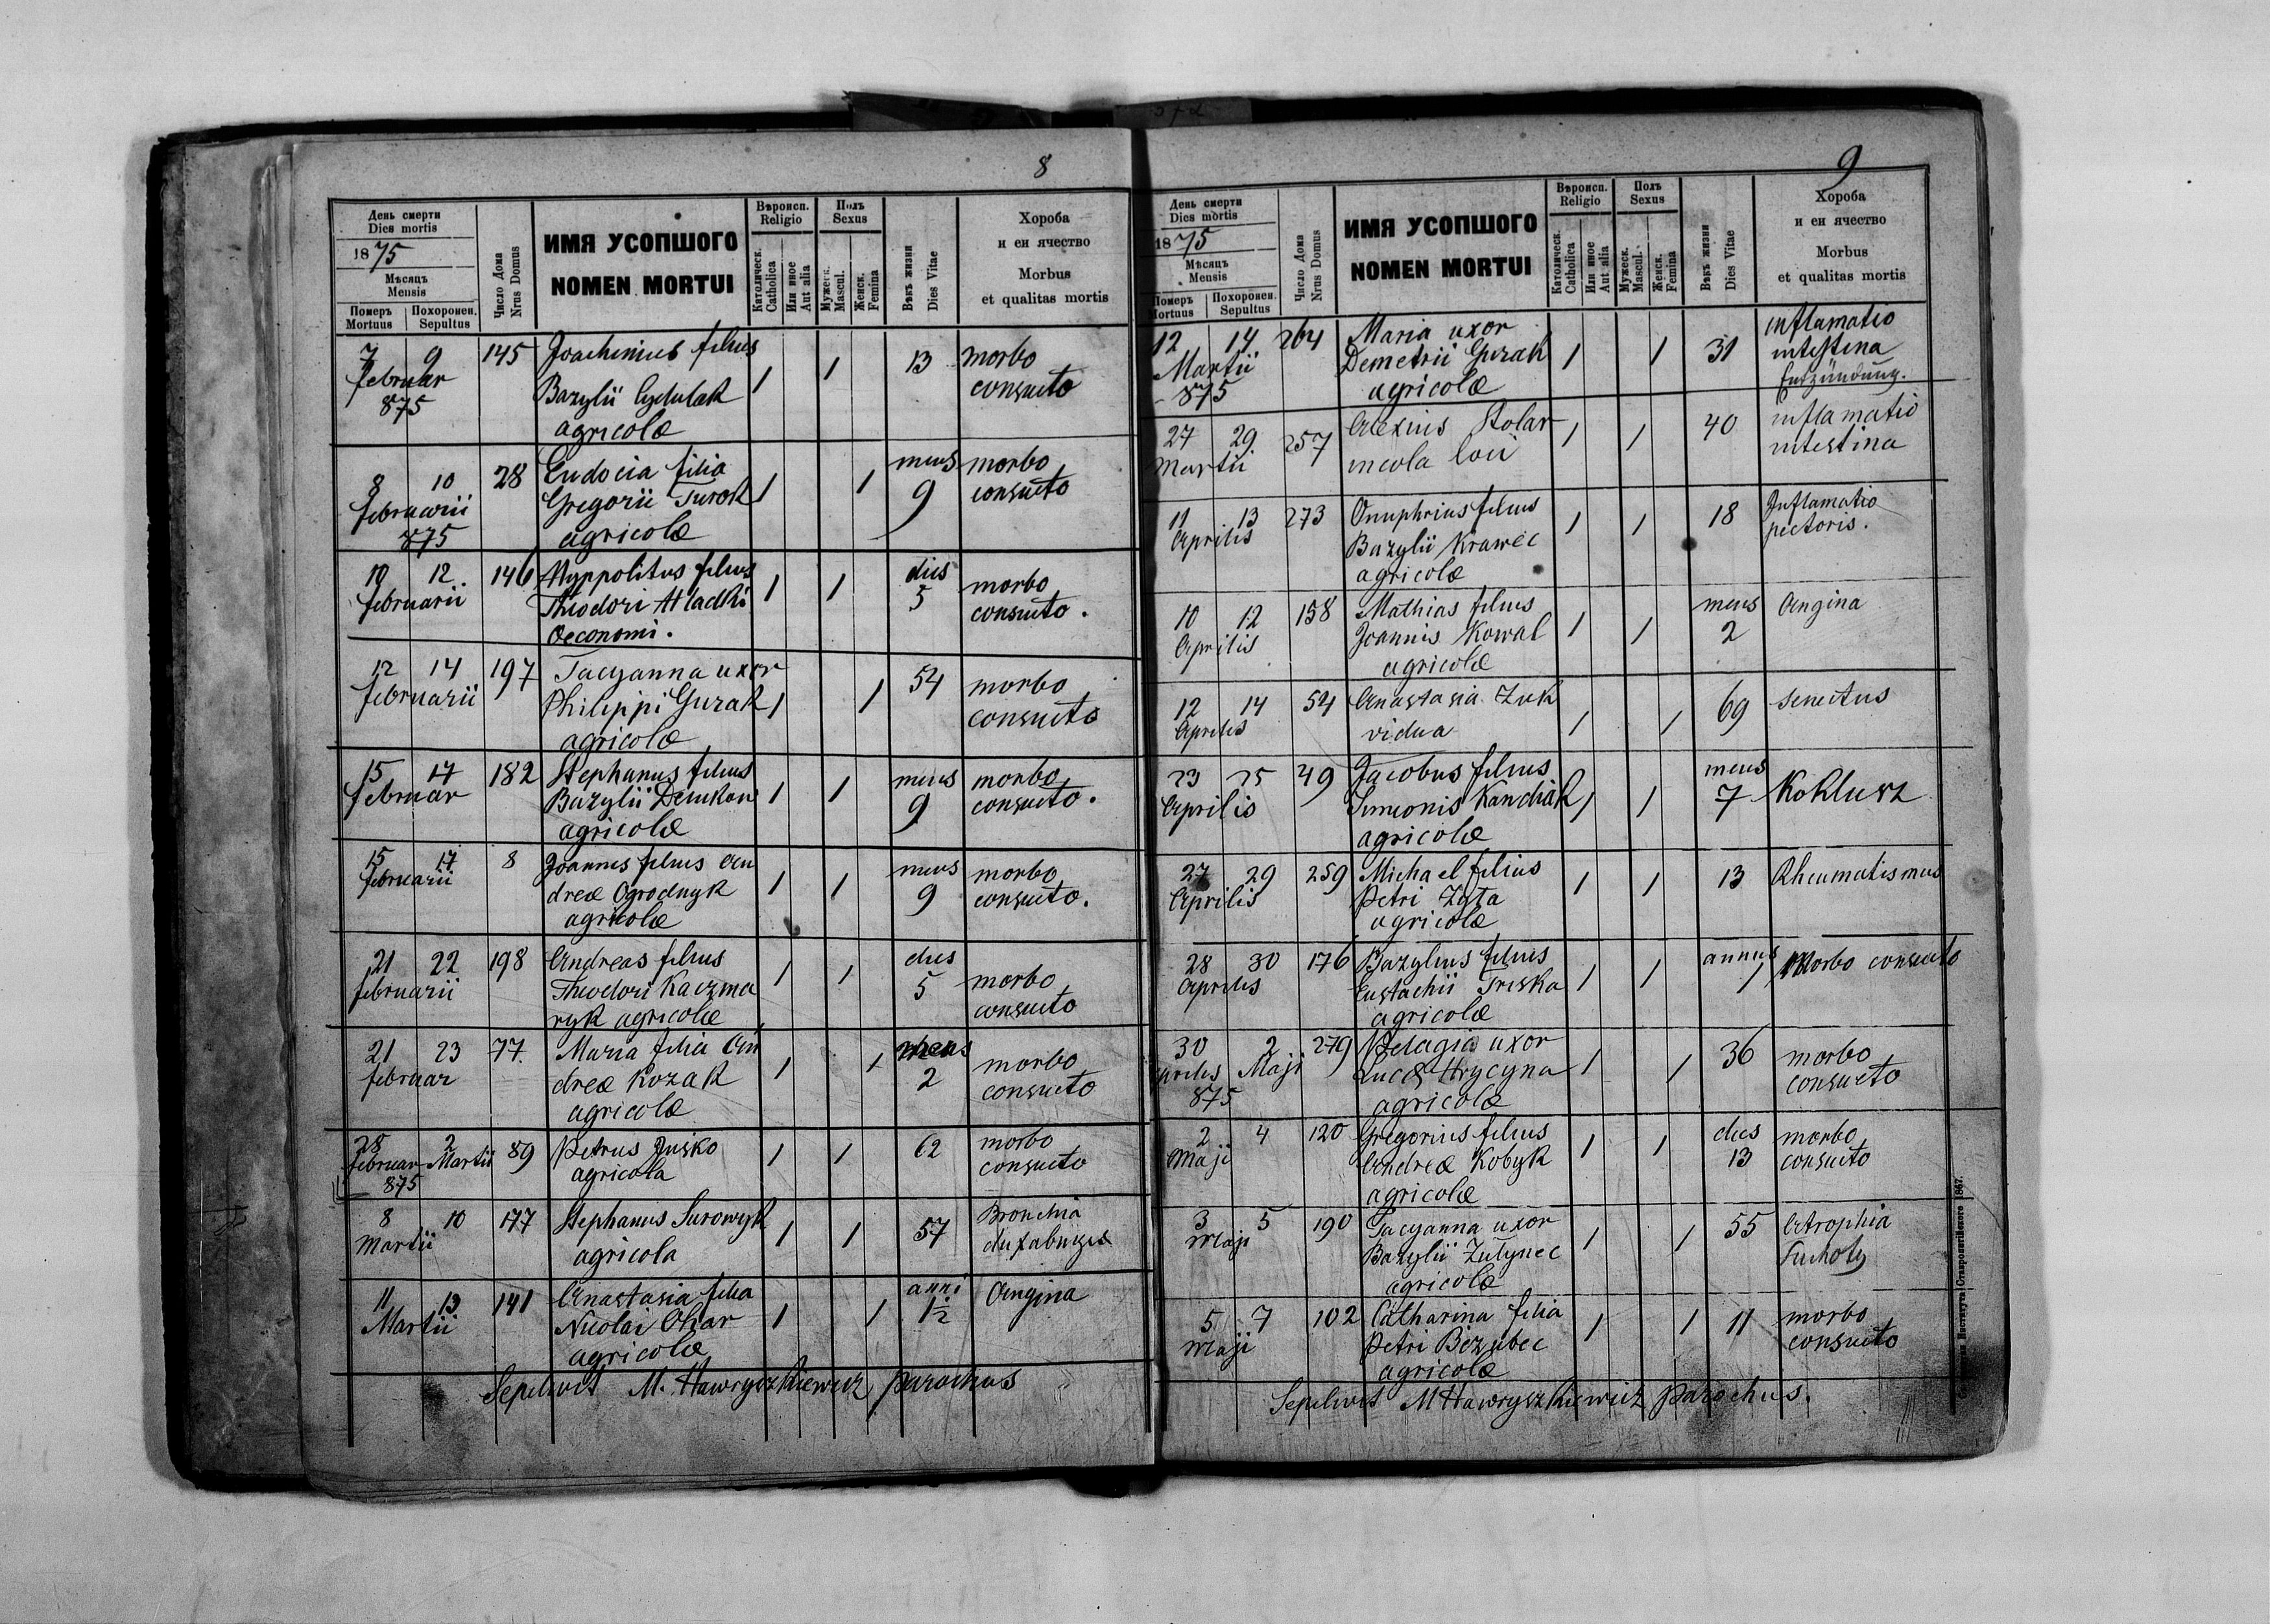 8
День смерти
Dies mortis
1875
Мѣсяць
Mensis
Померъ
Mortuus
Похоронен.
Sepultus
Число Дома
Nrus Domus
ИМЯ УСОПШОГО
NOMEN MORTUI
Вѣроисп.
Religio
Католическ.
Catholica
Или иное
Aut alia
Полъ
Sexus
Мужеск.
Mascul.
Женск.
Femina
Вѣкъ жизни
Dies Vitae
Хороба
и еи ячество
Morbus
et qualitas mortis
7 9 145 Joachimus filius
Februar
875
Bazylii Cydulak 1 1 13 morbo
consueto
agricolæ
8 10 28 Eudocia filia mens morbo
Februarii Gregorii Turok 1 1 9 consueto
875 agricolæ
10 12 146 Hyppolitus filius dies
Februarii Theodori Hladki 1 1 5 morbo
Oeconomi. consueto.
12 14 197 Tacyanna uxor
Februarii Philippi Gurak 1 1 54 morbo
agricolæ consueto
15 17 182 Stephanus filius mens morbo
Februar Bazylii 1 1 9 consueto.
agricolæ
15 17 8 Joannes filius An mens morbo
Februarii dreæ Ogrodnyk 1 1 9 consueto.
agricolæ
21 22 198 Andreas filius dies
Februarii Theodori Kaczma 1 1 5 morbo
ryk agricolæ consueto
21 23 77 Maria filia An mens
Februar dreæ Kozak 1 1 2 morbo
agricolæ consueto
28 2 89 Petrus Jusko 1 1 62 morbo
Februar Martii agricola consueto
875
8 10 177 Stephanus Surowyk 1 1 57 Bronchia
Martii agricola
11 13 141 Anastasia filia anni Angina
Martii Nicolai Ohar 1 1 1½
agricolæ
Sepelivit M. Hawryszkiewicz parochus
9
День смерти
Dies mortis
1875
Мѣсяць
Mensis
Померъ
Mortuus
Похоронен.
Sepultus
Число Дома
Nrus Domus
ИМЯ УСОПШОГО
NOMEN MORTUI
Вѣроисп.
Religio
Католическ.
Catholica
Или иное
Aut alia
Полъ
Sexus
Мужеск.
Mascul.
Женск.
Femina
Вѣкъ жизни
Dies Vitae
Хороба
и еи ячество
Morbus
et qualitas mortis
12 14 264 Maria uxor inflamatio
Martii Demetrii Gurak 1 1 31 intestina
875 agricolæ Entzündung.
27 29 257 Alexius Stolar 1 1 40 inflamatio
Martii incola loci intestina
11 13 273 Onuphrius filius 1 1 18 Inflamatio
Aprilis Bazylii Krawec pectoris.
agricolæ
10 12 158 Mathias filius mens Angina
Aprilis Joannis Kowal 1 1 2
agricolæ
12 14 54 Anastasia Zuk 69 senectus
Aprilis vidua 1 1
23 25 49 Jacobus filius mens
Aprilis Simeonis Kanchak 1 1 7 Koklusz
agricolæ
27 29 259 Michael filius 13 Rheumatismus
Aprilis Petri Zyta 1 1
agricolæ
28 30 176 Bazylius filius annus Morbo consueto
Aprilis Eustachii Triska 1 1 1
agricolæ
30 2 279 Pelagia uxor 36 morbo
Aprilis Maji Lucæ Hrycyna 1 1 consueto
875 agricolæ
2 4 120 Gregorius filius dies morbo
Maji Andreæ Kobyk 1 1 13 consueto
agricolæ
3 5 190 Tacyanna uxor 55 Atrophia
Maji Bazylii Zulynec 1 1 Suchoty
agricolæ
5 7 102 Catharina filia morbo
Maji Petri Bezubec 1 1 11 consueto
agricolæ
Sepelivit M Hawryszkiewicz parochus.
Института Ставропигійского 1867.